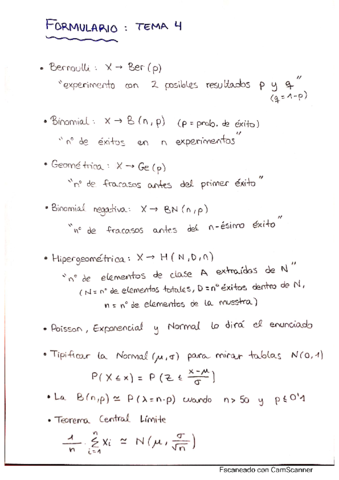 FORMULARIO : TEMA 4
• Bernoulli : X → Ber (p)
"experimento con 2 posibles resultados p y q"
(q = 1-p)
• Binomial : X → B (n, p) (p = prob. de éxito)
"nº de éxitos en n experimentos"
• Geométrica : X → Ge (p)
"nº de fracasos antes del primer éxito"
• Binomial negativa : X → BN (n, p)
"nº de fracasos antes del n-ésimo éxito"
• Hipergeométrica : X → H (N, D, n)
"nº de elementos de clase A extraídos de N"
(N = nº de elementos totales, D = nº éxitos dentro de N,
n = nº de elementos de la muestra)
• Poisson, Exponencial y Normal lo dirá el enunciado
• Tipificar la Normal (μ, σ) para mirar tablas N(0, 1)
P (X ≤ x) = P (Z ≤ x-μ/σ)
• La B(n, p) ≃ P (λ = n·p) cuando n > 50 y p ≤ 0'1
• Teorema Central Límite
1/n · Σ(i=1, n) xi ≈ N (μ, σ/√n)
Escaneado con CamScanner